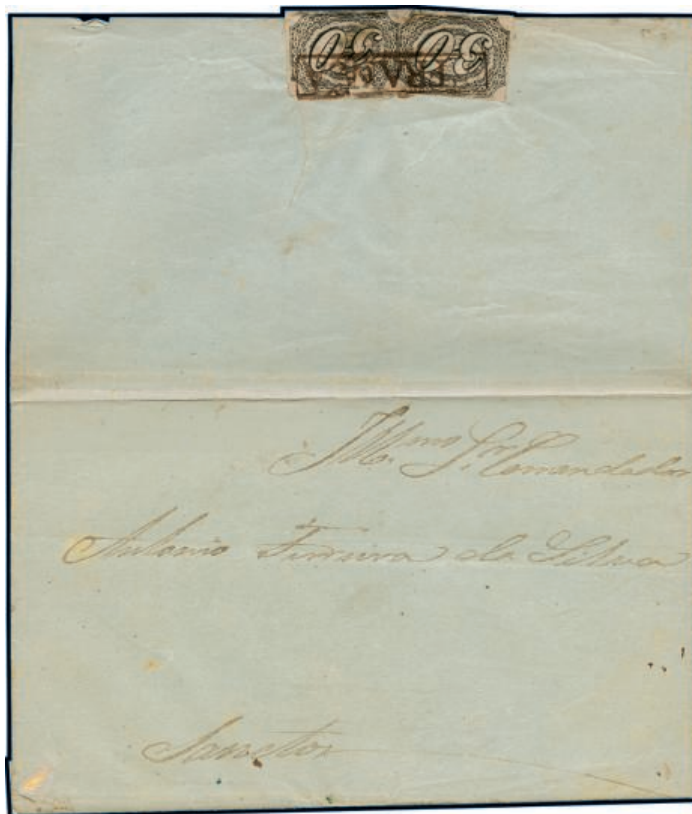 30 30
Illmo Sr. Comandador
Antonio Ferreira da Silva
Sanctos